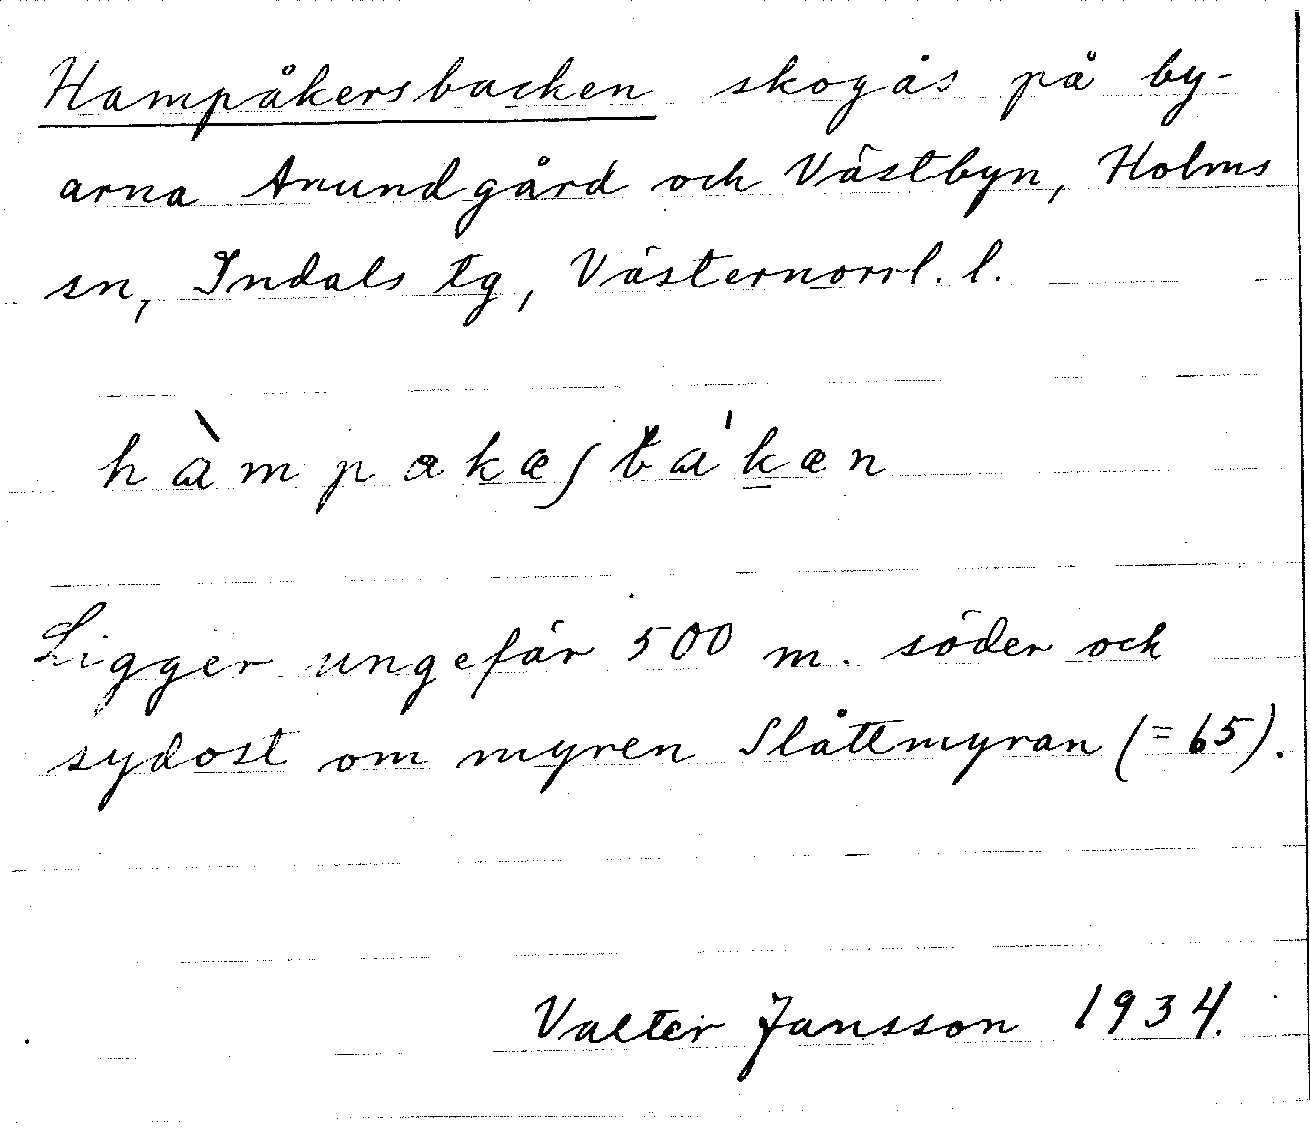 Hampåkersbacken skogås på by-
arna Anundgård och Västbyn, Holms
sn, Indals tg, Västernorrl. l.
hàmpakæʃbákæn
Ligger ungefär 500 m. söder och
sydost om myren Slåttmyran (= 65).
Valter Jansson 1934.